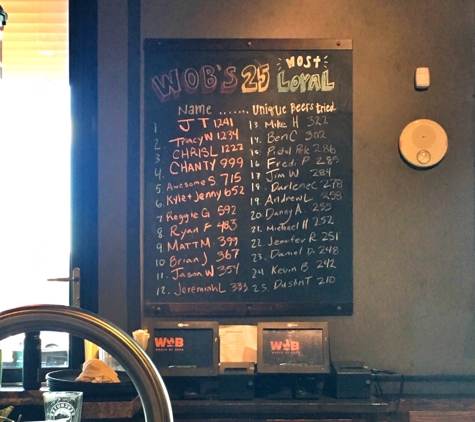 WOB'S 25 MOST LOYAL
Name ....... Unique Beers tried
1. JT 1241
2. Tracy W 1234
3. CHRISL 1222
4. CHANTY 999
5. Awesome S. 715
6. Kyle + Jenny 652
7. Reggie G 592
8. Ryan F 483
9. MATT M 399
10. Brian J 367
11. Jason W 354
12. Jeremiah L 333
13. Mike H 322
14. Ben C 302
15. Pistol Pete 286
16. Fred P 285
17. Jim W 284
18. Darlene C 278
19. Andrew L 258
20. Danny A. 255
21. Michael H 252
22. Jennifer R 251
23. Daniel D. 248
24. Kevin B 242
25. Dustin T 210
WOB
WORLD OF BEER
WOB
WORLD OF BEER